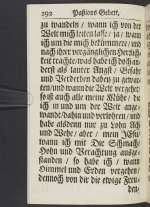 292 Passions Gebett.
zu wandeln / wann ich von der
Welt mich leiten lasse / ja / wann
ich um die mich bekümmere / und
nach ihrer vergänglichen Herrlich-
keit trachte / was habe ich doch an-
derst als lauter Angst / Gefahr
und Verderben dahin zu gewarten /
soll auch alle meine Mühe / die
ich in und um die Welt ange-
wandt / dahin und verlohren / und
habe alsdenn nur zu Lohn Ach
und Wehe / aber / mein JEsu /
wann ich mit Dir Schmach /
Hohn und Verachtung ausge-
standen / so habe ich / wann
Himmel und Erden vergehen /
dennoch von dir die ewige Freu-
den /